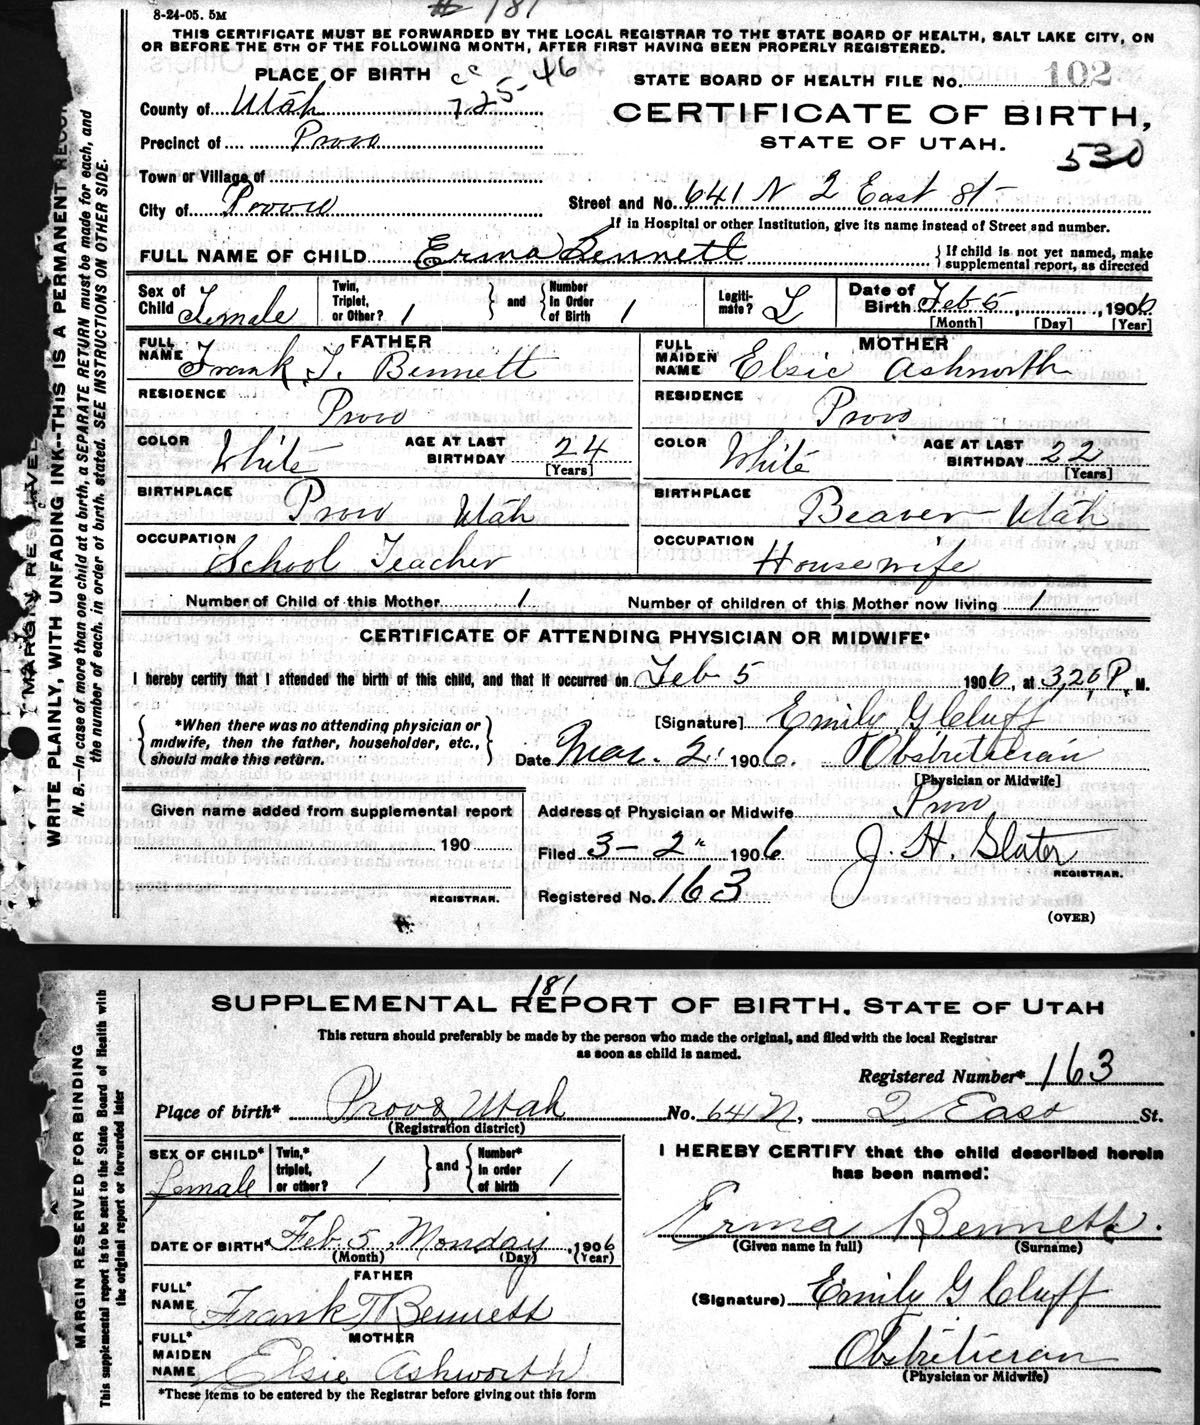 # 181
8-24-05. 5M
THIS CERTIFICATE MUST BE FORWARDED BY THE LOCAL REGISTRAR TO THE STATE BOARD OF HEALTH, SALT LAKE CITY, ON
OR BEFORE THE 5TH OF THE FOLLOWING MONTH, AFTER FIRST HAVING BEEN PROPERLY REGISTERED.
PLACE OF BIRTH cc 7-25-46
STATE BOARD OF HEALTH FILE NO. 102
County of Utah
CERTIFICATE OF BIRTH,
Precinct of Provo
STATE OF UTAH.
530
Town or Village of
City of Provo
Street and No. 641 N 2 East St
If in Hospital or other Institution, give its name instead of Street and number.
FULL NAME OF CHILD Erma Bennett { If child is not yet named, make supplemental report, as directed
Sex of Child Female Twin, Triplet, or Other? 1 } and { Number in Order of Birth 1 Legiti-mate? L Date of Birth Feb 5, 1906
[Month] [Day] [Year]
FATHER MOTHER
FULL NAME Frank T. Bennett FULL MAIDEN NAME Elsie Ashworth
RESIDENCE Provo RESIDENCE Provo
COLOR White AGE AT LAST BIRTHDAY 24 [Years] COLOR White AGE AT LAST BIRTHDAY 22 [Years]
BIRTHPLACE Provo Utah BIRTHPLACE Beaver Utah
OCCUPATION School Teacher OCCUPATION Housewife
Number of Child of this Mother 1 Number of children of this Mother now living 1
CERTIFICATE OF ATTENDING PHYSICIAN OR MIDWIFE*
I hereby certify that I attended the birth of this child, and that it occurred on Feb 5 1906, at 3,20 P. M.
{ *When there was no attending physician or midwife, then the father, householder, etc., should make this return. }
[Signature] Emily G Cluff
Date Mar. 2 1906. Obstetrician
[Physician or Midwife]
Given name added from supplemental report
190
REGISTRAR.
Address of Physician or Midwife Provo
Filed 3-2" 1906 J. H. Slater
REGISTRAR.
Registered No. 163
(OVER)
MARGIN RESERVED
WRITE PLAINLY, WITH UNFADING INK--THIS IS A PERMANENT RECOR
N. B.--In case of more than one child at a birth, a SEPARATE RETURN must be made for each, and
the number of each, in order of birth, stated. SEE INSTRUCTIONS ON OTHER SIDE.
181
SUPPLEMENTAL REPORT OF BIRTH, STATE OF UTAH
This return should preferably be made by the person who made the original, and filed with the local Registrar
as soon as child is named.
Registered Number* 163
Place of birth* Provo Utah No. 641 N, 2 East St.
(Registration district)
SEX OF CHILD* female Twin,* triplet, or other? 1 } and { Number* in order of birth 1
I HEREBY CERTIFY that the child described herein
has been named:
Erma Bennett.
(Given name in full) (Surname)
DATE OF BIRTH* Feb. 5, Monday, 1906
(Month) (Day) (Year)
FATHER
FULL* NAME Frank T Bennett
(Signature) Emily G Cluff
MOTHER
FULL* MAIDEN NAME Elsie Ashworth
Obstetrician
(Physician or Midwife)
*These items to be entered by the Registrar before giving out this form
MARGIN RESERVED FOR BINDING
This supplemental report is to be sent to the State Board of Health with
the original report or forwarded later